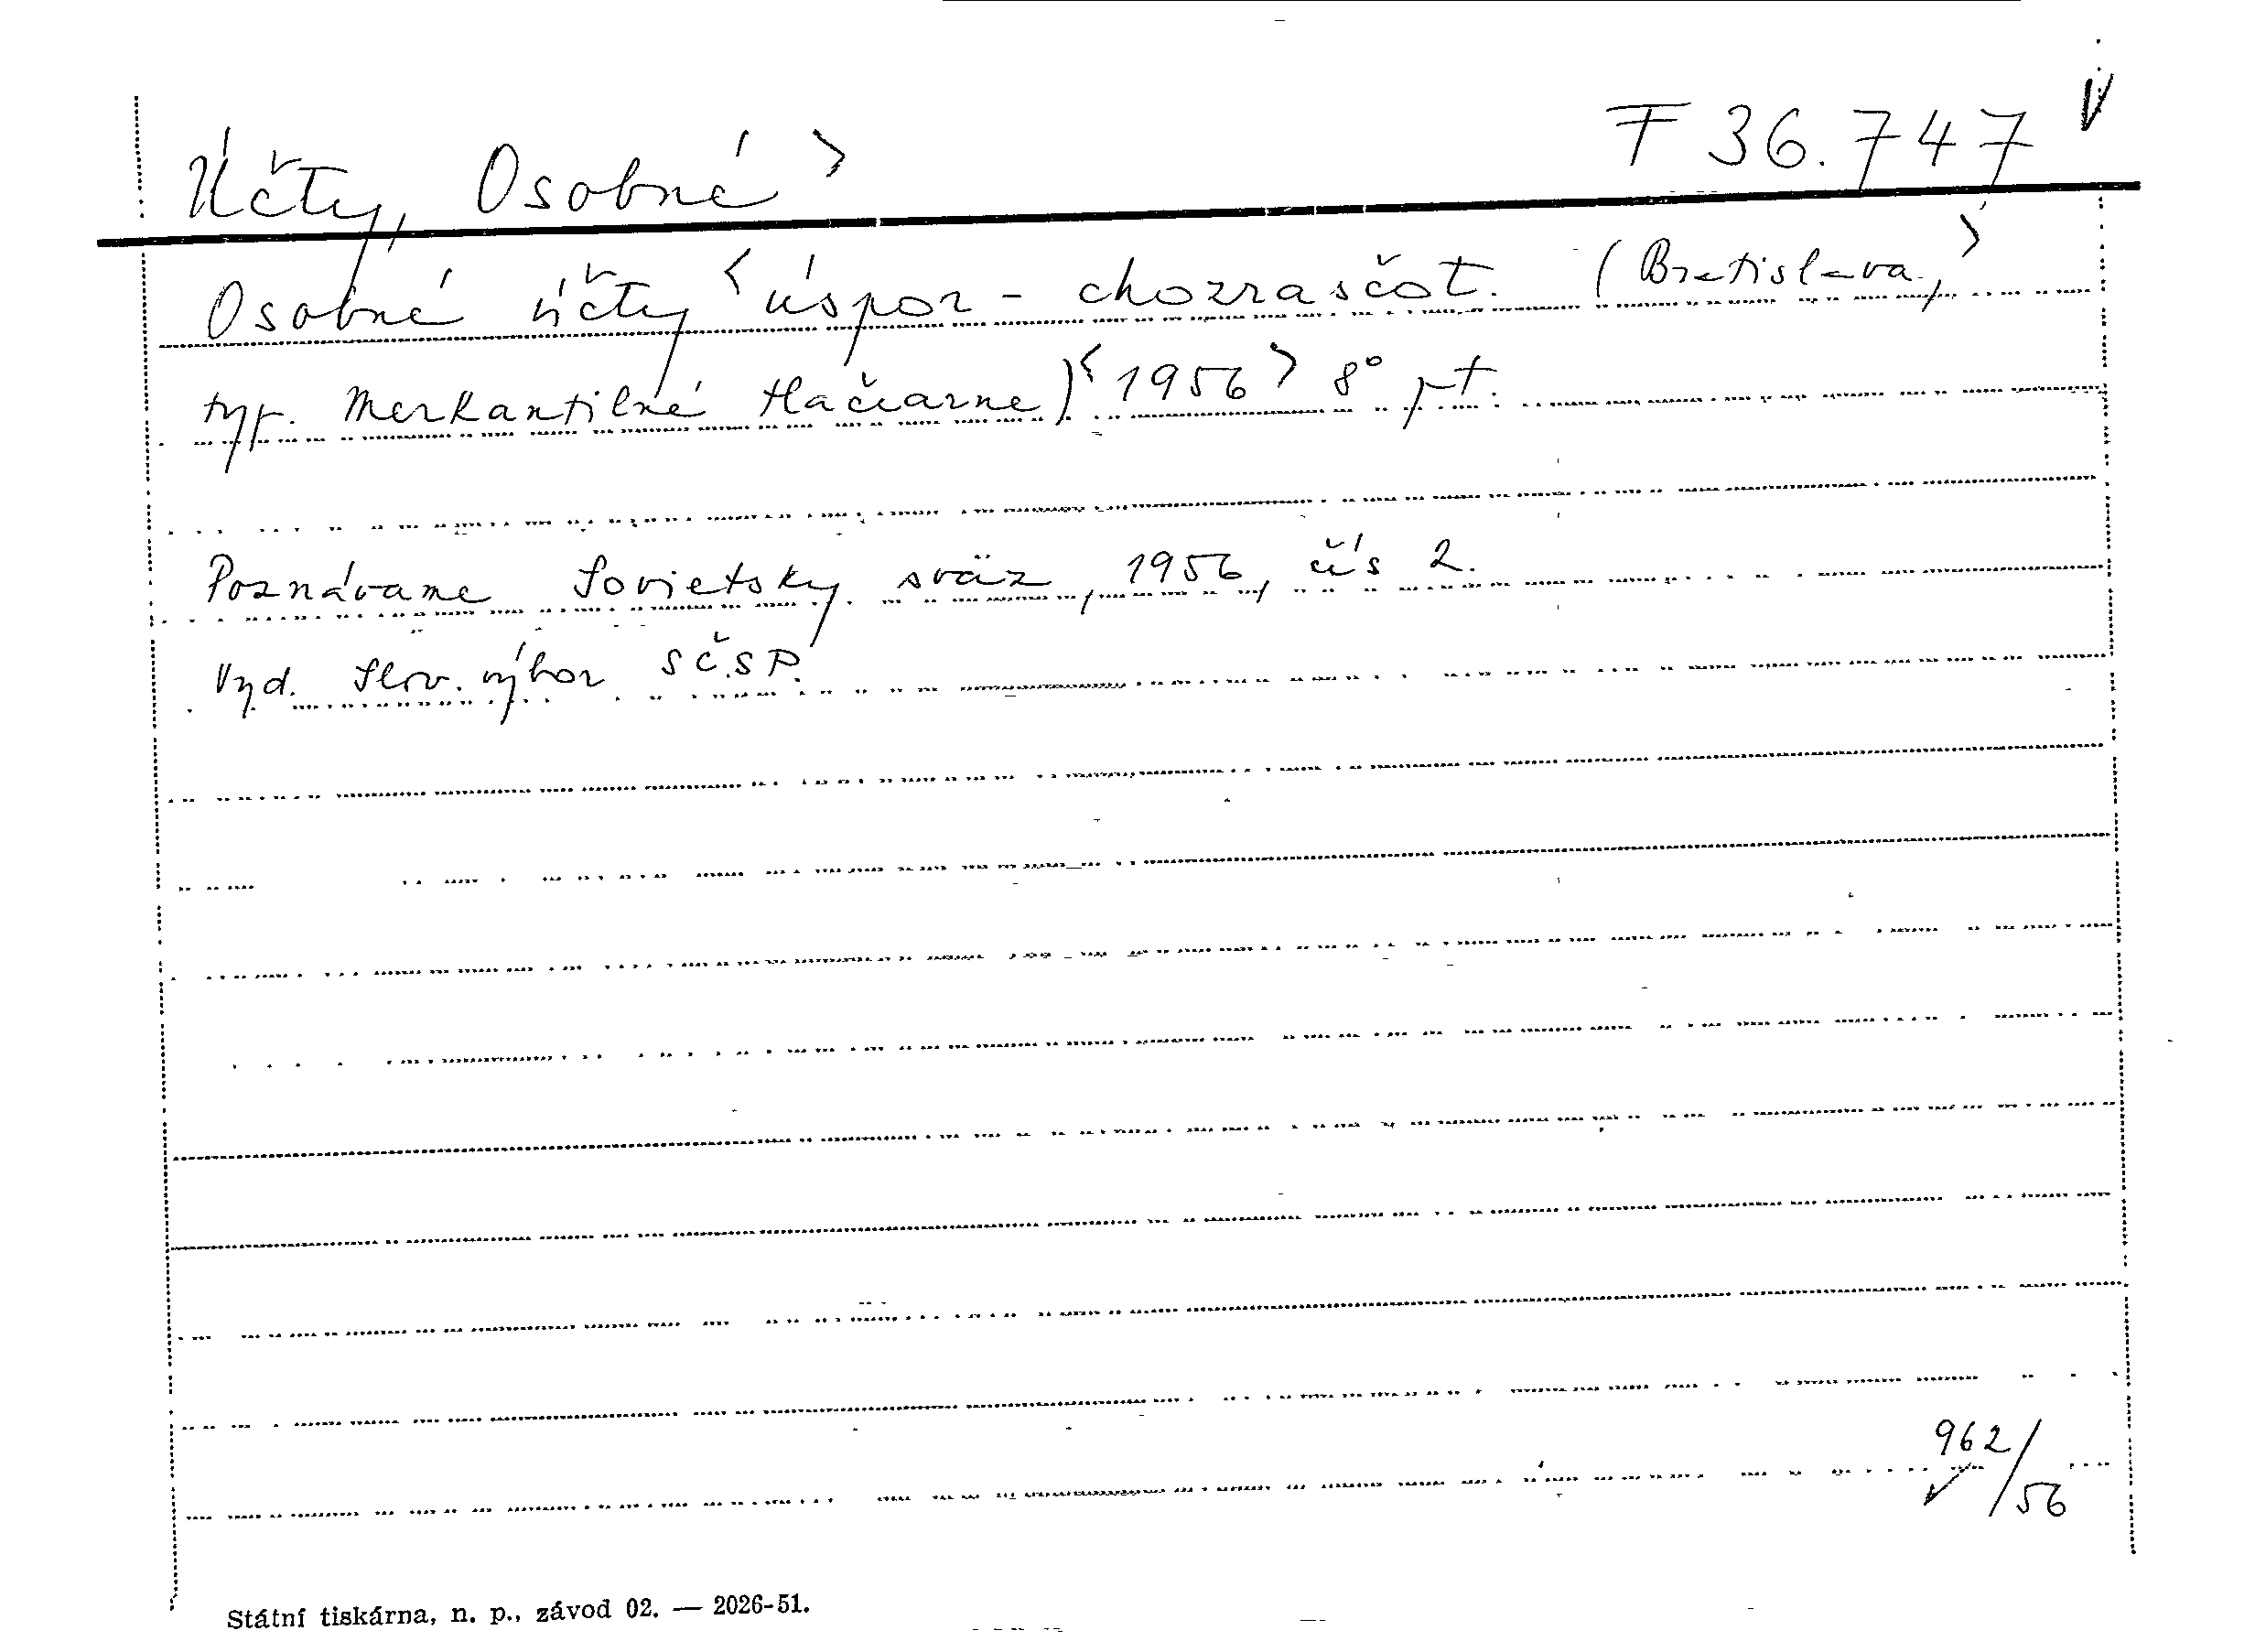 Účty, Osobné > F 36.747
Osobné účty < úspor - chozrasčot. (Bratislava, >
typ. Merkantilné tlačiarne) < 1956 > 8° pt.
Poznávame Sovietsky sväz, 1956, čís 2.
Vyd. Slov. výbor SČSP.
962/56
Státní tiskárna, n. p., závod 02. — 2026-51.